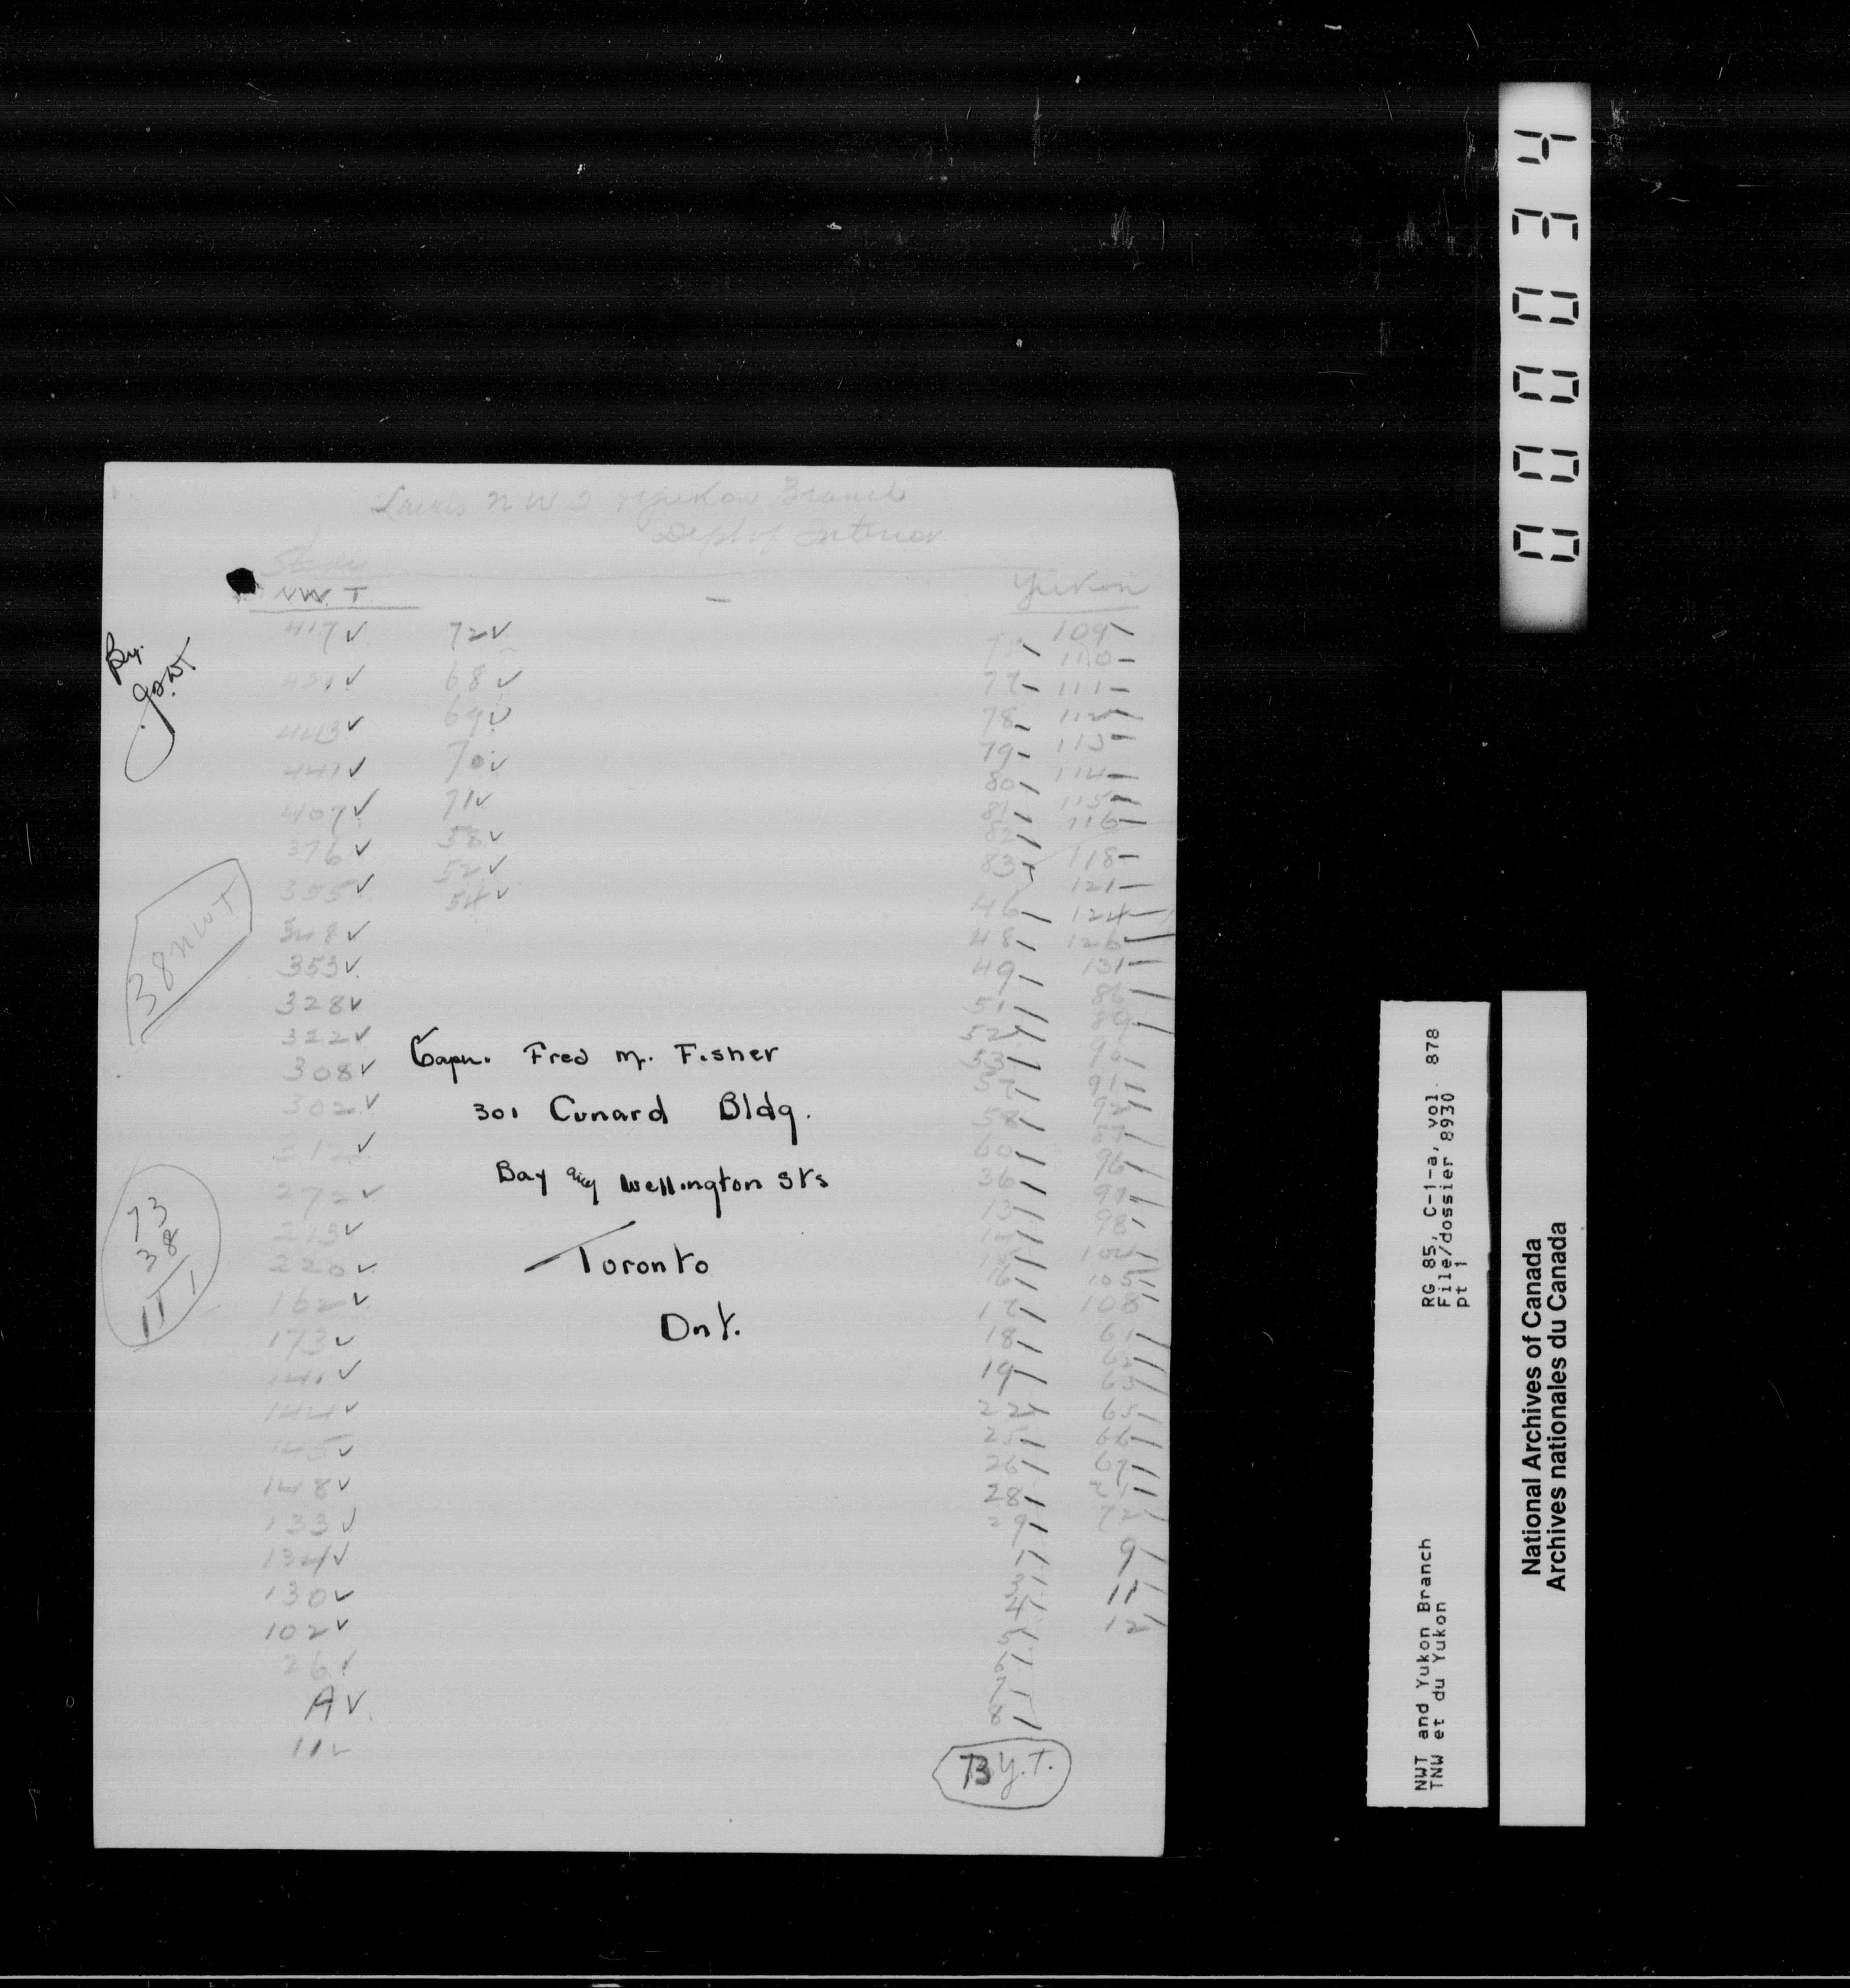 N W T & Yukon Branch
Dept of Interior
N.W.T.
Yukon
417 ✓
443 ✓
441 ✓
407 ✓
376 ✓
355 ✓
348 ✓
353 ✓
328 ✓
322 ✓
308 ✓
302 ✓
312 ✓
272 ✓
213 ✓
220 ✓
162 ✓
173 ✓
141 ✓
144 ✓
145 ✓
148 ✓
133 ✓
134 ✓
130 ✓
102 ✓
26 ✓
A ✓
11 ✓
72 ✓
68 ✓
69 ✓
70 ✓
71 ✓
58 ✓
52 ✓
54 ✓
38 NWT
73
38
111
Capn. Fred M. Fisher
301 Cunard Bldg.
Bay and Wellington Sts
Toronto
Ont.
77
78
79
80
81
82
83
46
48
49
51
52
53
57
58
60
36
13
14
15
16
17
18
19
22
25
26
28
29
3
4
5
6
7
8
73 Y.T.
109
110
111
112
113
114
115
116
118
121
124
126
131
86
89
90
91
92
96
97
98
102
105
108
61
62
63
65
66
67
72
9
11
12
000034
RG 85, C-1-a, vol. 878
File/dossier 8930
pt 1
NWT and Yukon Branch
TNW et du Yukon
National Archives of Canada
Archives nationales du Canada